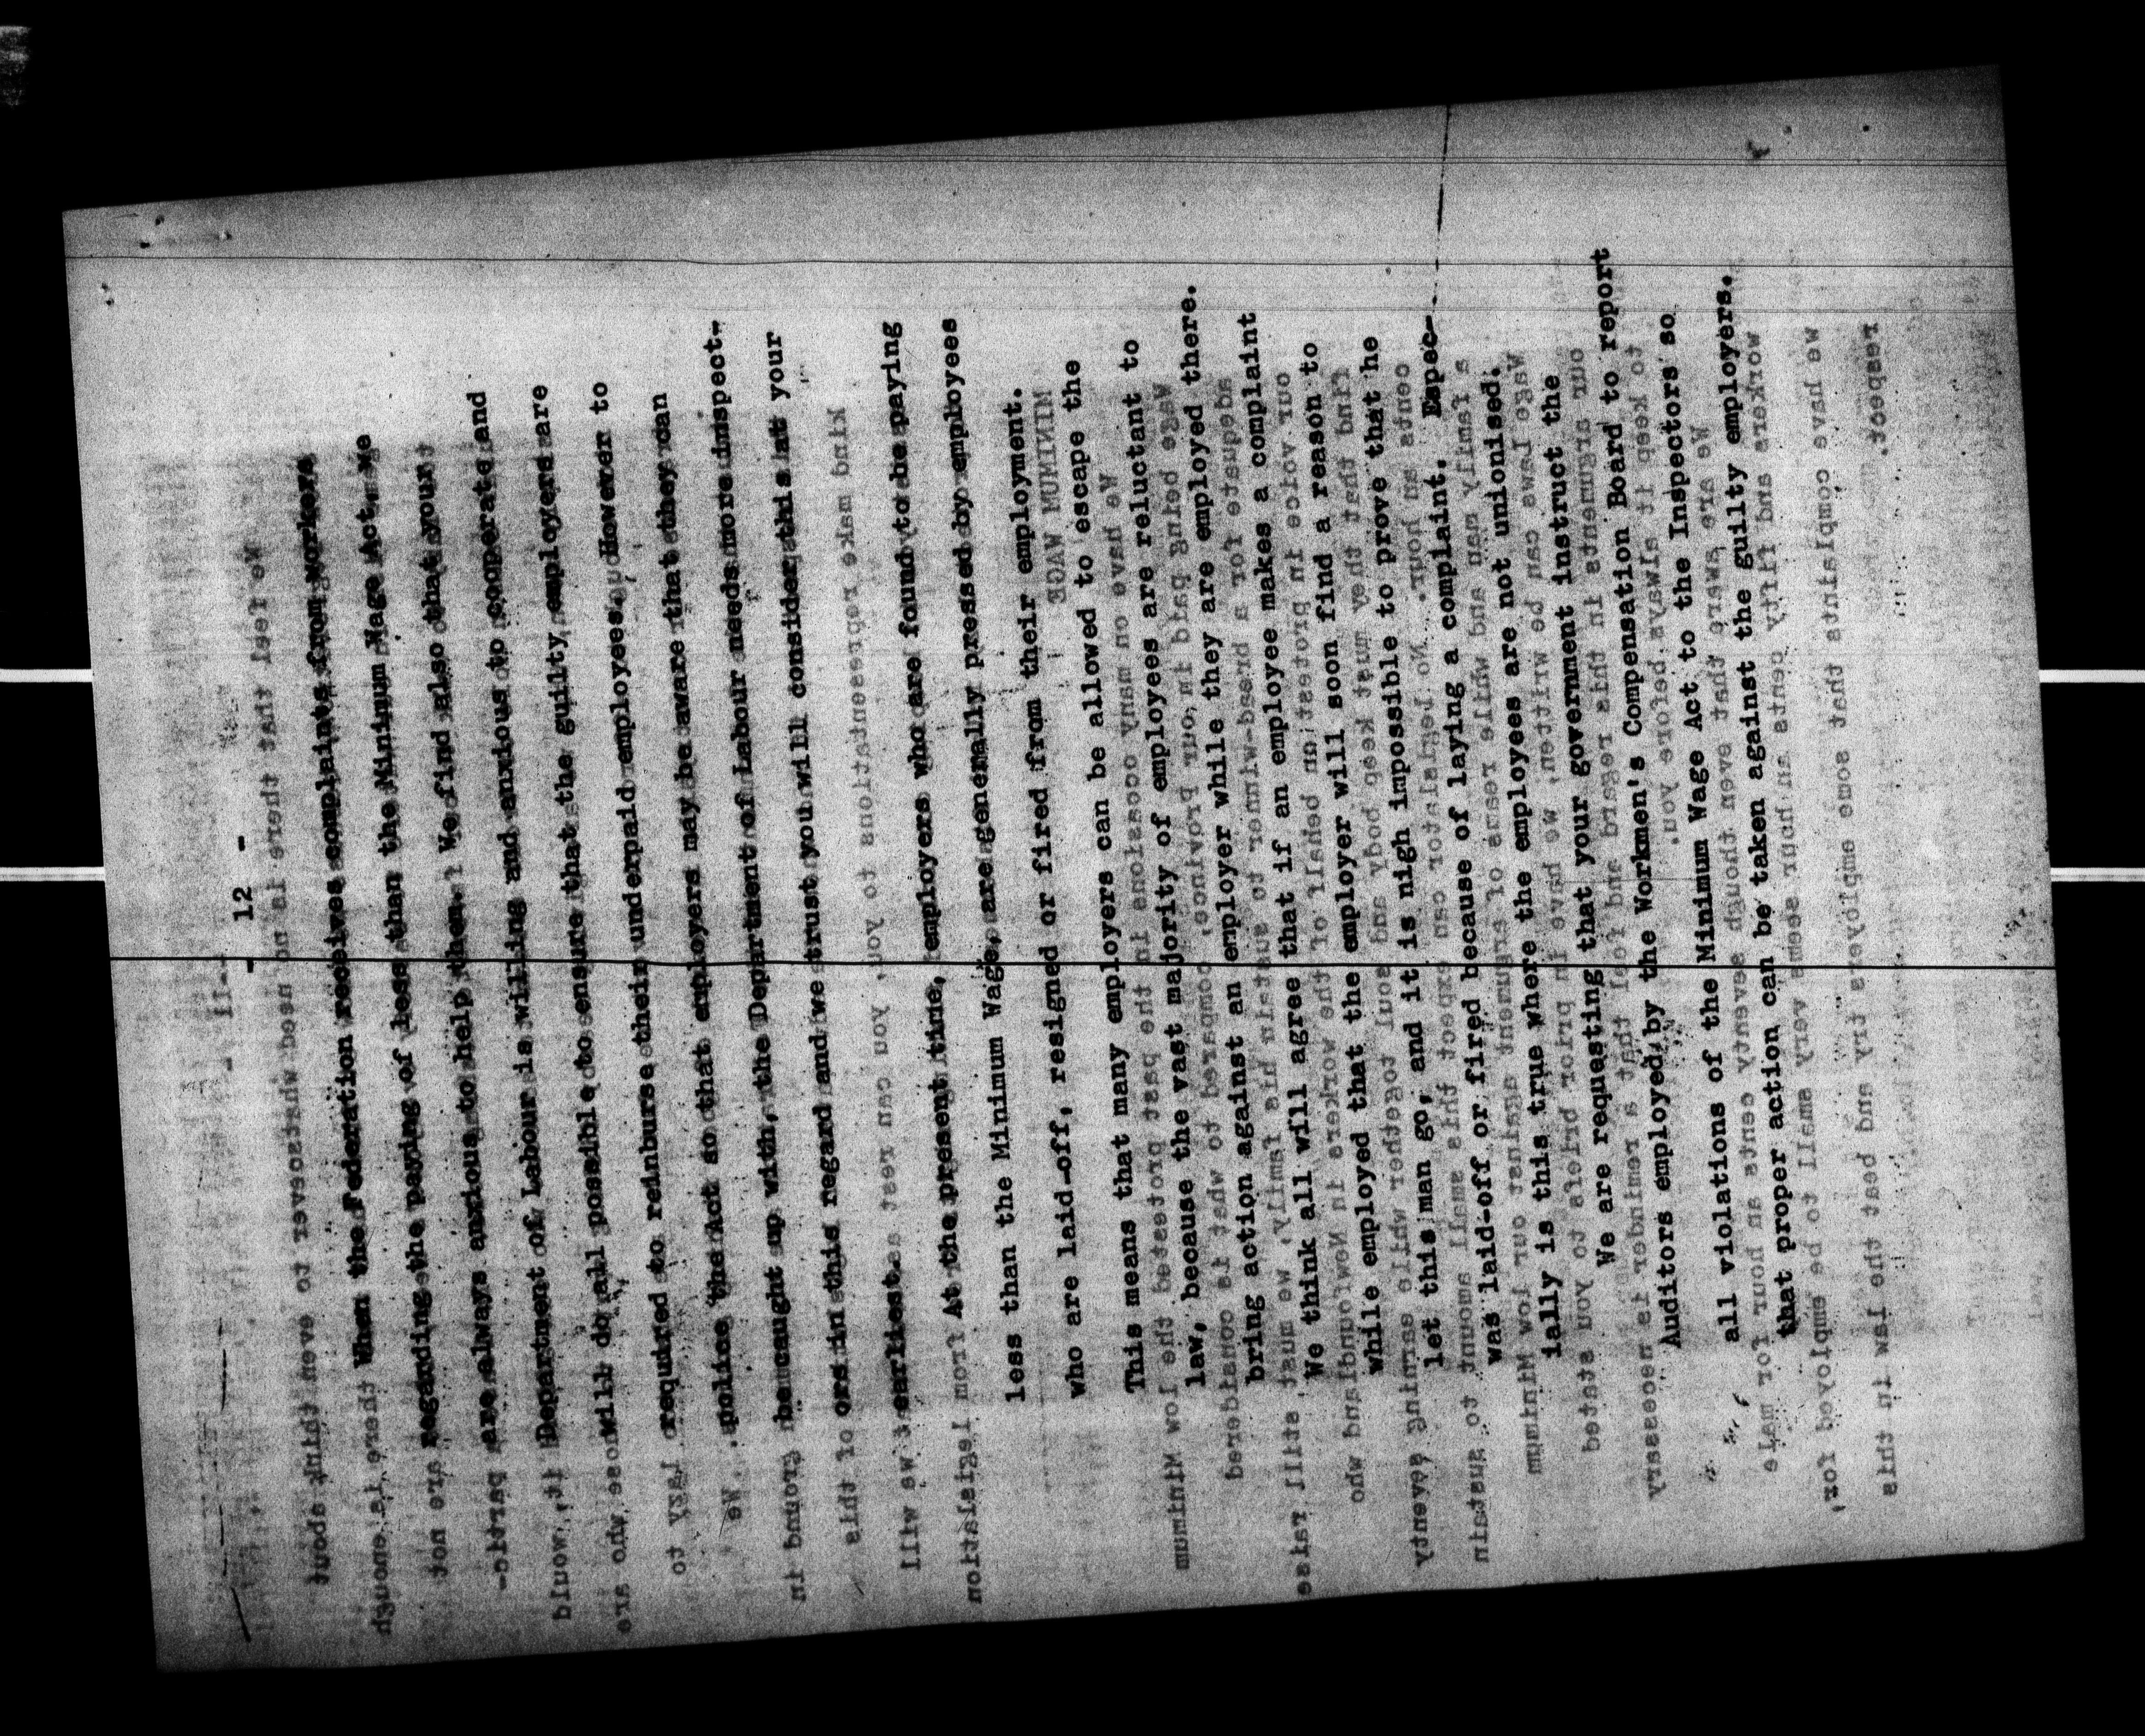 - 12 -
When the Federation receives complaints from workers
regarding the paying of less than the Minimum Wage Act, we
are always anxious to help them. We find also that your
Department of Labour is willing and anxious to cooperate and
will do all possible to ensure that the guilty employers are
required to reinburse their underpaid employees. However to
police the Act so that employers may be aware that they can
be caught up with, the Department of Labour needs more inspect-
ors in this regard and we trust you will consider this at your
earliest.
At the present time, employers who are found to be paying
less than the Minimum Wage, are generally pressed by employees
who are laid-off, resigned or fired from their employment.
This means that many employers can be allowed to escape the
law, because the vast majority of employees are reluctant to
bring action against an employer while they are employed there.
We think all will agree that if an employee makes a complaint
while employed that the employer will soon find a reason to
let this man go, and it is nigh impossible to prove that he
was laid-off or fired because of laying a complaint. Espec-
ially is this true where the employees are not unionised.
We are requesting that your government instruct the
Auditors employed by the Workmen's Compensation Board to report
all violations of the Minimum Wage Act to the Inspectors so
that proper action can be taken against the guilty employers.